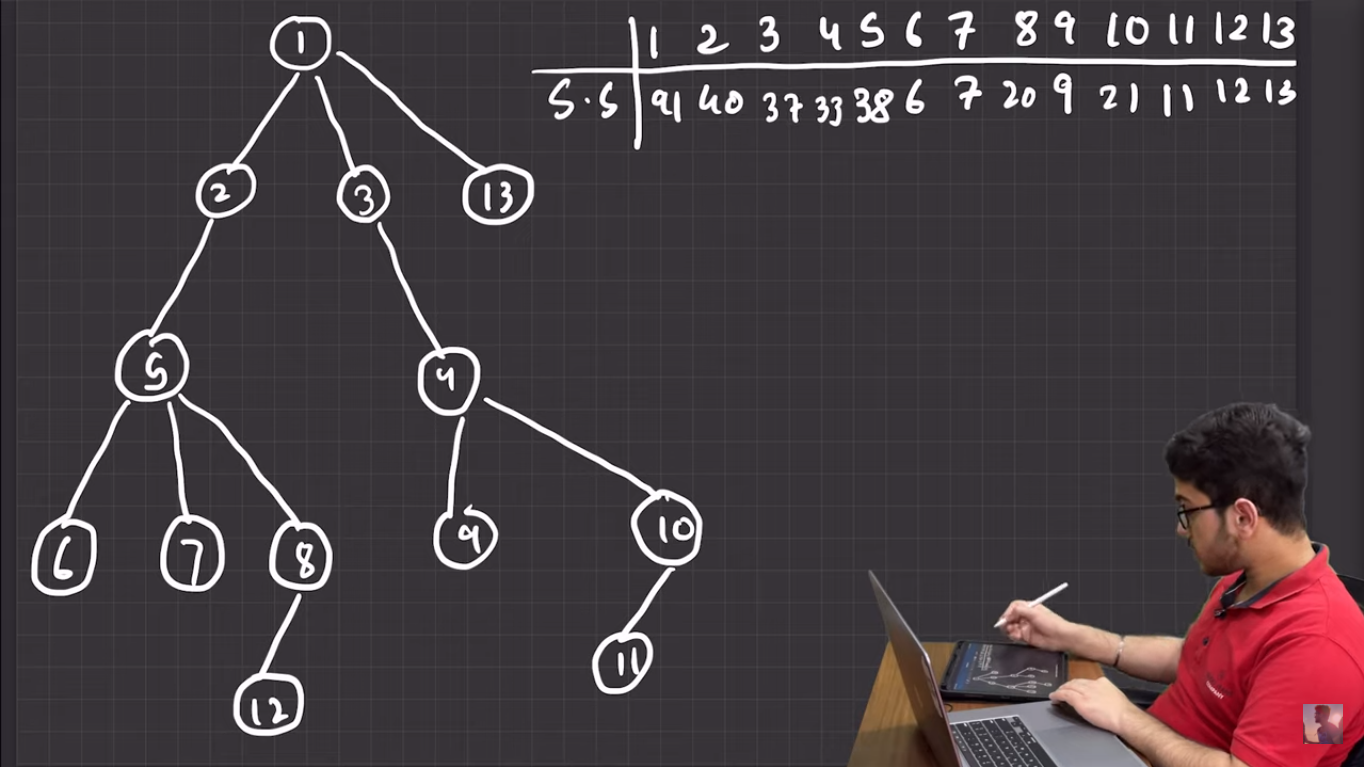 1 2 3 4 5 6 7 8 9 10 11 12 13
S.S 91 40 37 33 38 6 7 20 9 21 11 12 13
1
2 3 13
5 4
6 7 8 9 10
11
12